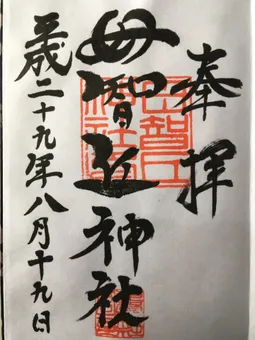 奉拝
母智丘神社
平成二十九年八月十九日